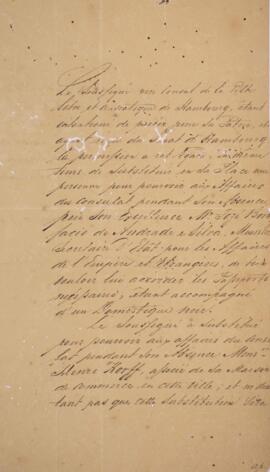 Le Soussigné vice Consul de la Ville
libre et anséatique de Hambourg, étant
intentionné de partir pour sa Patrie, et
ayant reçu du Sénat d'Hambourg
la permission à cet égard,
de Substituer en sa Place une
personne pour pourvoir aux Affaires
du consulat pendant son Absence,
prie Son Excellence Mr. José Boni
facio de Andrade e Silva, Ministre
Secrétaire d'Etat pour les Affaires
de l'Empire et Etrangères, de
vouloir lui accorder les Passeports
nécessaires, étant accompagné
d'un Domestique noir.
Le Soussigné a Substitué
pour pourvoir aux affaires du Consu
lat pendant son Absence Mons.
Korff, associé de la Maison
de commerce en cette ville; et
tant pas que cette Substitution